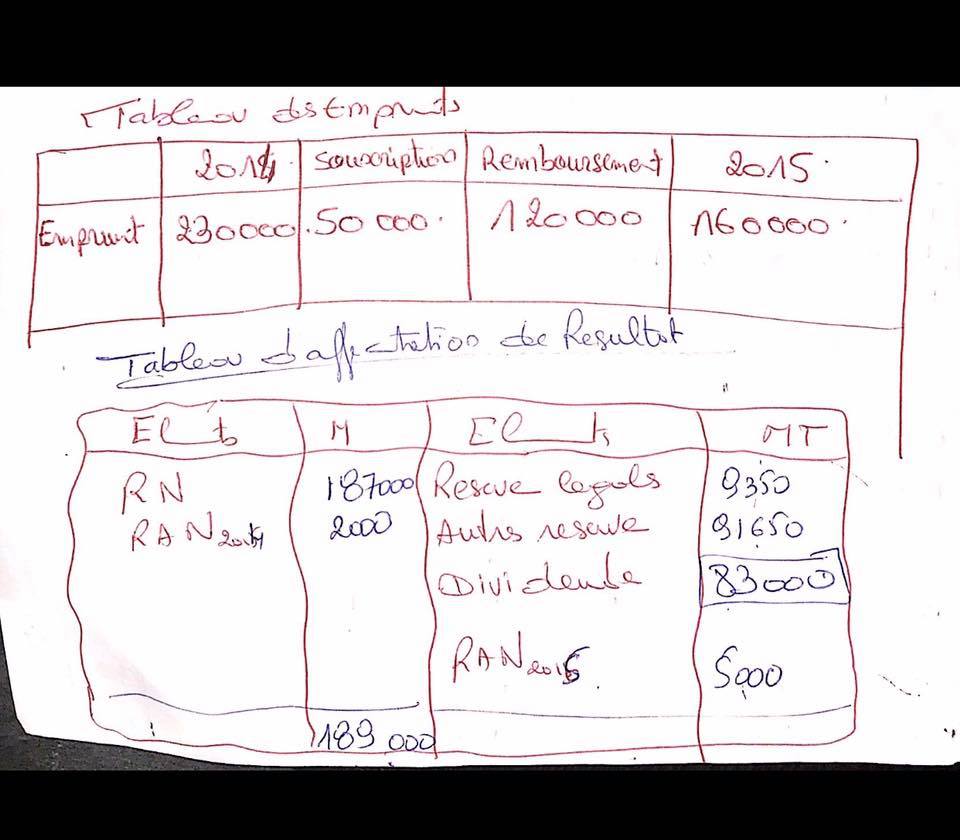 Tableau des Emprunts
2014 Souscription Remboursement 2015
Emprunt 230000 50 000 120000 160000
Tableau d'affectation de Resultat
Elts M Elts MT
RN 187000 Reserve legals 9350
RAN 2014 2000 Autres reserve 91650
Dividende 83000
RAN 2015 5000
189 000